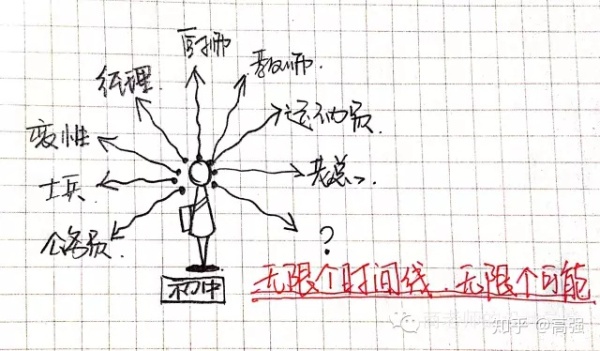 厨师
教师
经理
运动员
变性
老总
士兵
公务员
?
初中
无限个时间线.无限个可能
知乎 @高强